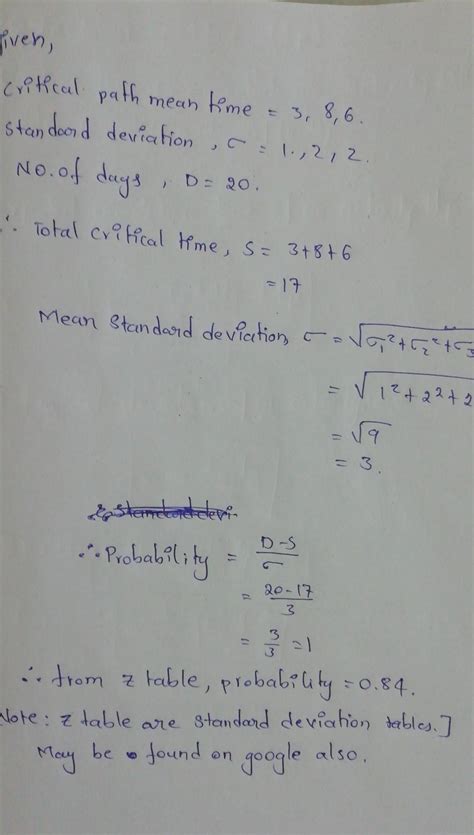 iven,
Critical path mean time = 3, 8, 6.
Standard deviation, σ = 1., 2, 2.
No. of days, D = 20.
∴ Total critical time, S = 3+8+6
= 17
Mean Standard deviation, σ = √σ₁²+σ₂²+σ₃
= √1²+2²+2
= √9
= 3.
∴ Probability = D-S/σ
= 20-17/3
= 3/3 = 1
∴ from z table, probability = 0.84.
Note: z table are standard deviation tables.]
May be found on google also.